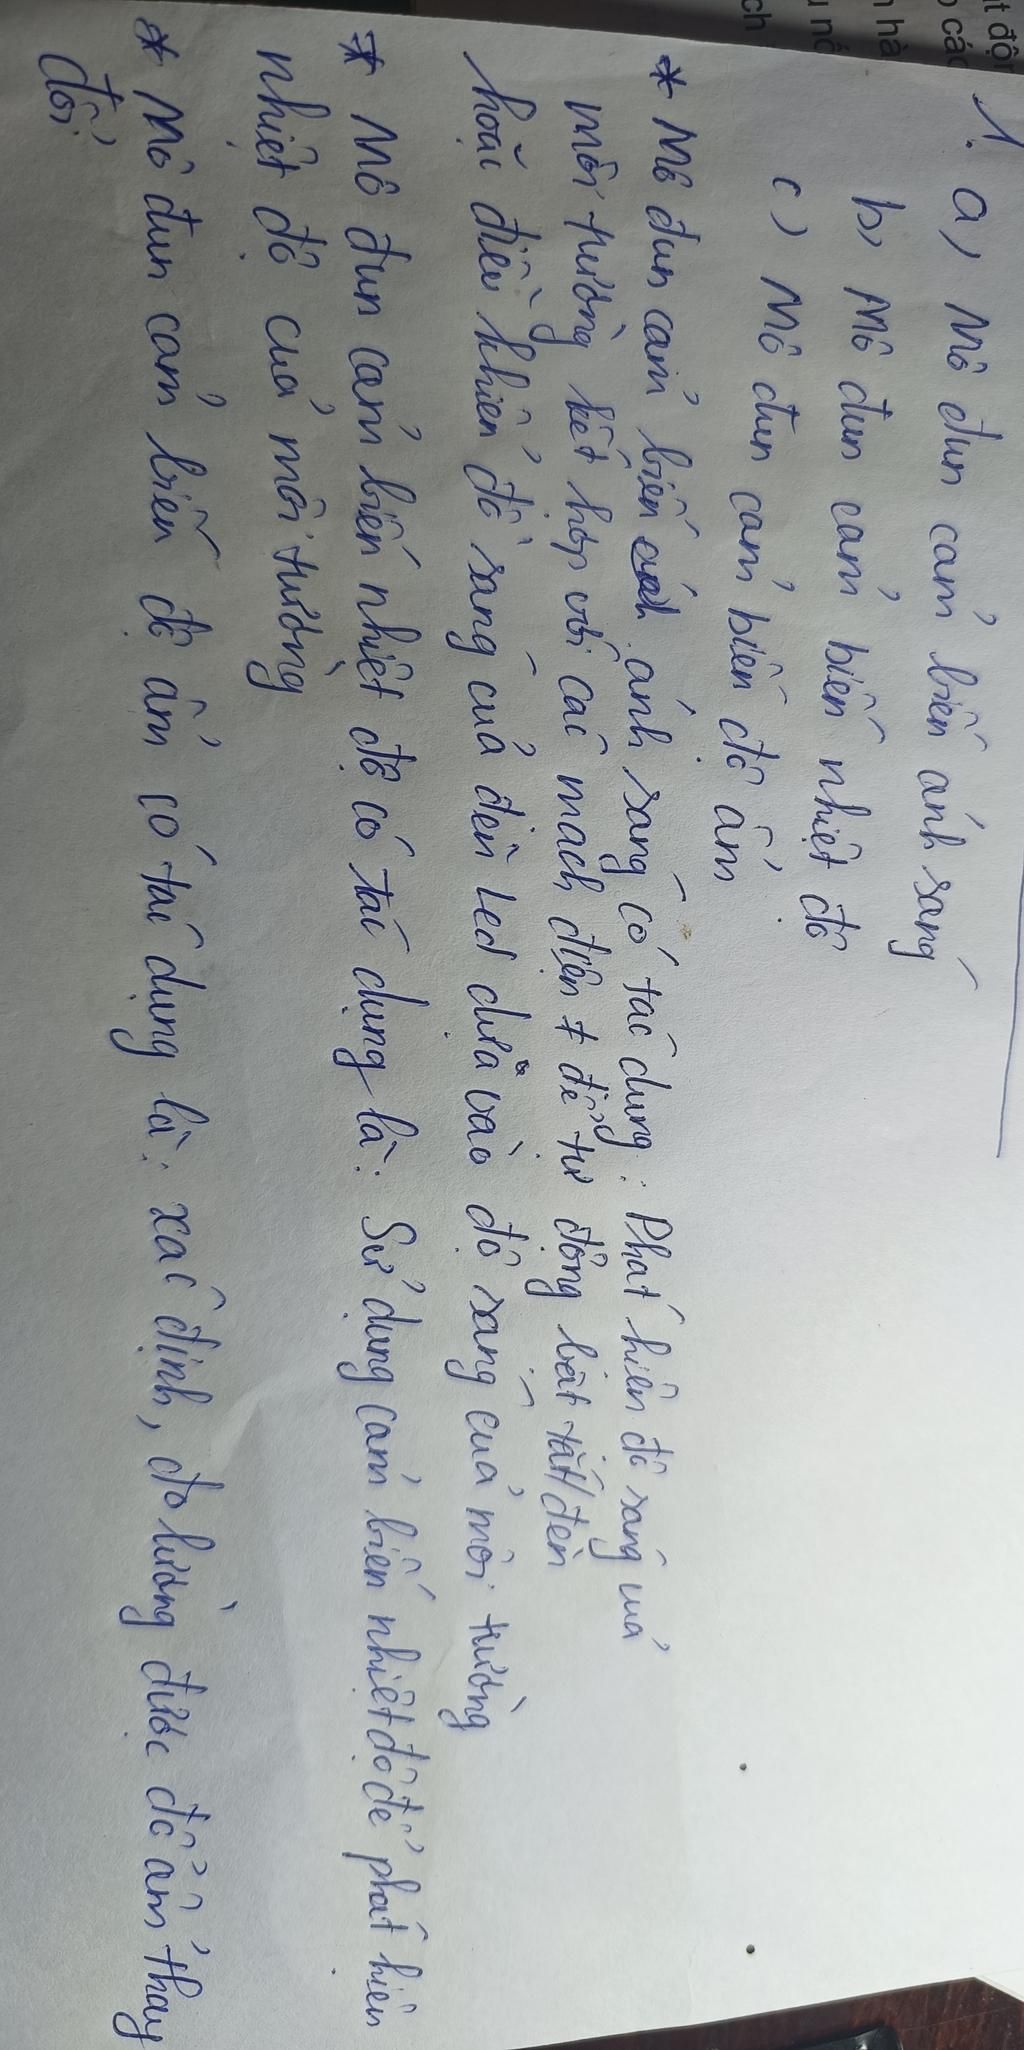 1. a) Mô đun cảm biến ánh sáng
b) Mô đun cảm biến nhiệt độ
c) Mô đun cảm biến độ ẩm
* Mô đun cảm biến ánh sáng có tác dụng: Phát hiện độ sáng của
môi trường kết hợp với các mạch điện t để tự động bật tắt đèn
hoặc điều khiển độ sáng của đèn Led dựa vào độ sáng của môi trường
* Mô đun cảm biến nhiệt độ có tác dụng là: Sử dụng cảm biến nhiệt độ để phát hiện
nhiệt độ của môi trường
* Mô đun cảm biến độ ẩm có tác dụng là: xác định, đo lường được độ ẩm thay
đổi
t độn
các
hà
nố
ch